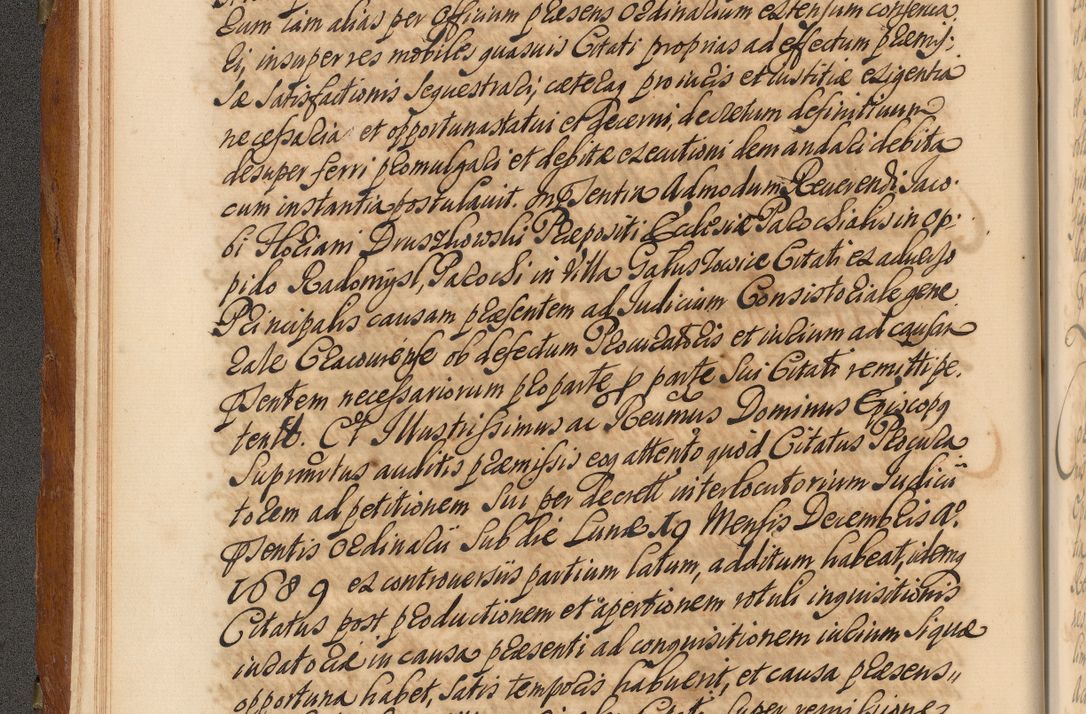 eum tam alias per Officium præsens Ordinarium extensum conserva
ri, insuper res mobiles quasuis Citati proprias ad effectum præmis:
sæ satisfactionis sequestrari; cæteraq pro iuris et iustitiæ exigentia
necessaria et opportuna statui et decerni, decretum definitiuum
desuper ferri promulgari et debitæ executioni demandari debita
cum instantia postulauit. In Psentia Admodum Reuerendi Iaco:
bi Floriani Druszkowski Præpositi Ecclesiæ Parochialis in op:
pido Radomÿsl, Parochi in Villa Galuszowice Citati ex aduerso
Principalis causam præsentem ad Iudicium Consistoriale gene
rale Cracouiense ob defectum Procuratoris et iurium ad causam
Psentem necessariorum pro parte p parte sui Citati remitti pe.
tentt. Et Illustrissimus ac Reumus Dominus Episcopg
Supranrtus auditis præmissis eoq attento quod Citatus Procura
torem ad petitionem sui per decrett interlocutorium Iudicii
Psentis Ordinarii sub die Lunæ 19 Mensis Decembris Aº.
1689 ex controuersiis partium latum, additum habeat, idemq
Citatus post productionem et apertionem rotuli inquisitionis
iuratoriæ in causa præsenti ad conquisitionem iurium siquæ
opportuna habet, satis temporis habuerit, et causa præsens,,
super remissione